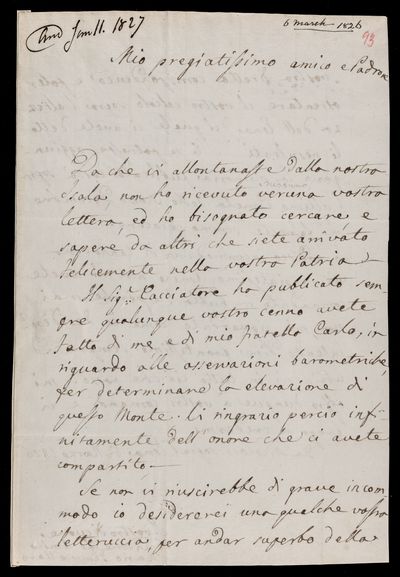 Ans Jan 11. 1827
6 march 1826
93
Mio pregiatissimo amico e Padrone
Da che vi allontanaste dalla nostra
Isola non ho ricevuto veruna vostra
lettera, ed ho bisognato cercare, e
sapere da altri che siete arrivato
felicemente nella vostra Patria
Il Sigr. Cacciatore ha publicato sem-
pre qualunque vostro cenno avete
fatto di me e di mio fratello Carlo, in
riguardo alle osservazioni barometriche,
per determinare la elevazione di
questo Monte. Vi ringrazio perciò infi-
nitamente dell' onore che ci avete
compartito.
Se non vi riuscirebbe di grave incom
modo io desidererei una qualche vostra
letteruccia, per andar superbo della